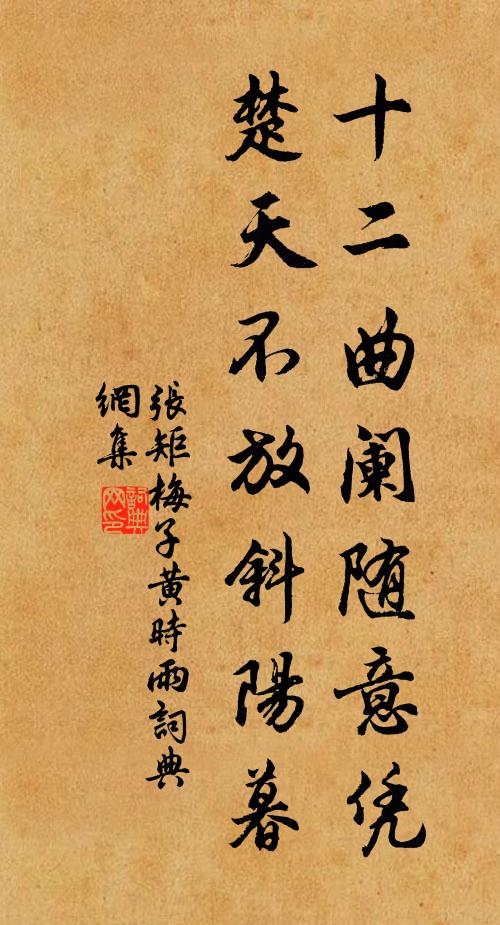 十二曲阑随意凭
楚天不放斜陽暮
張矩梅子黃時雨詞典
網集
詞典
网印